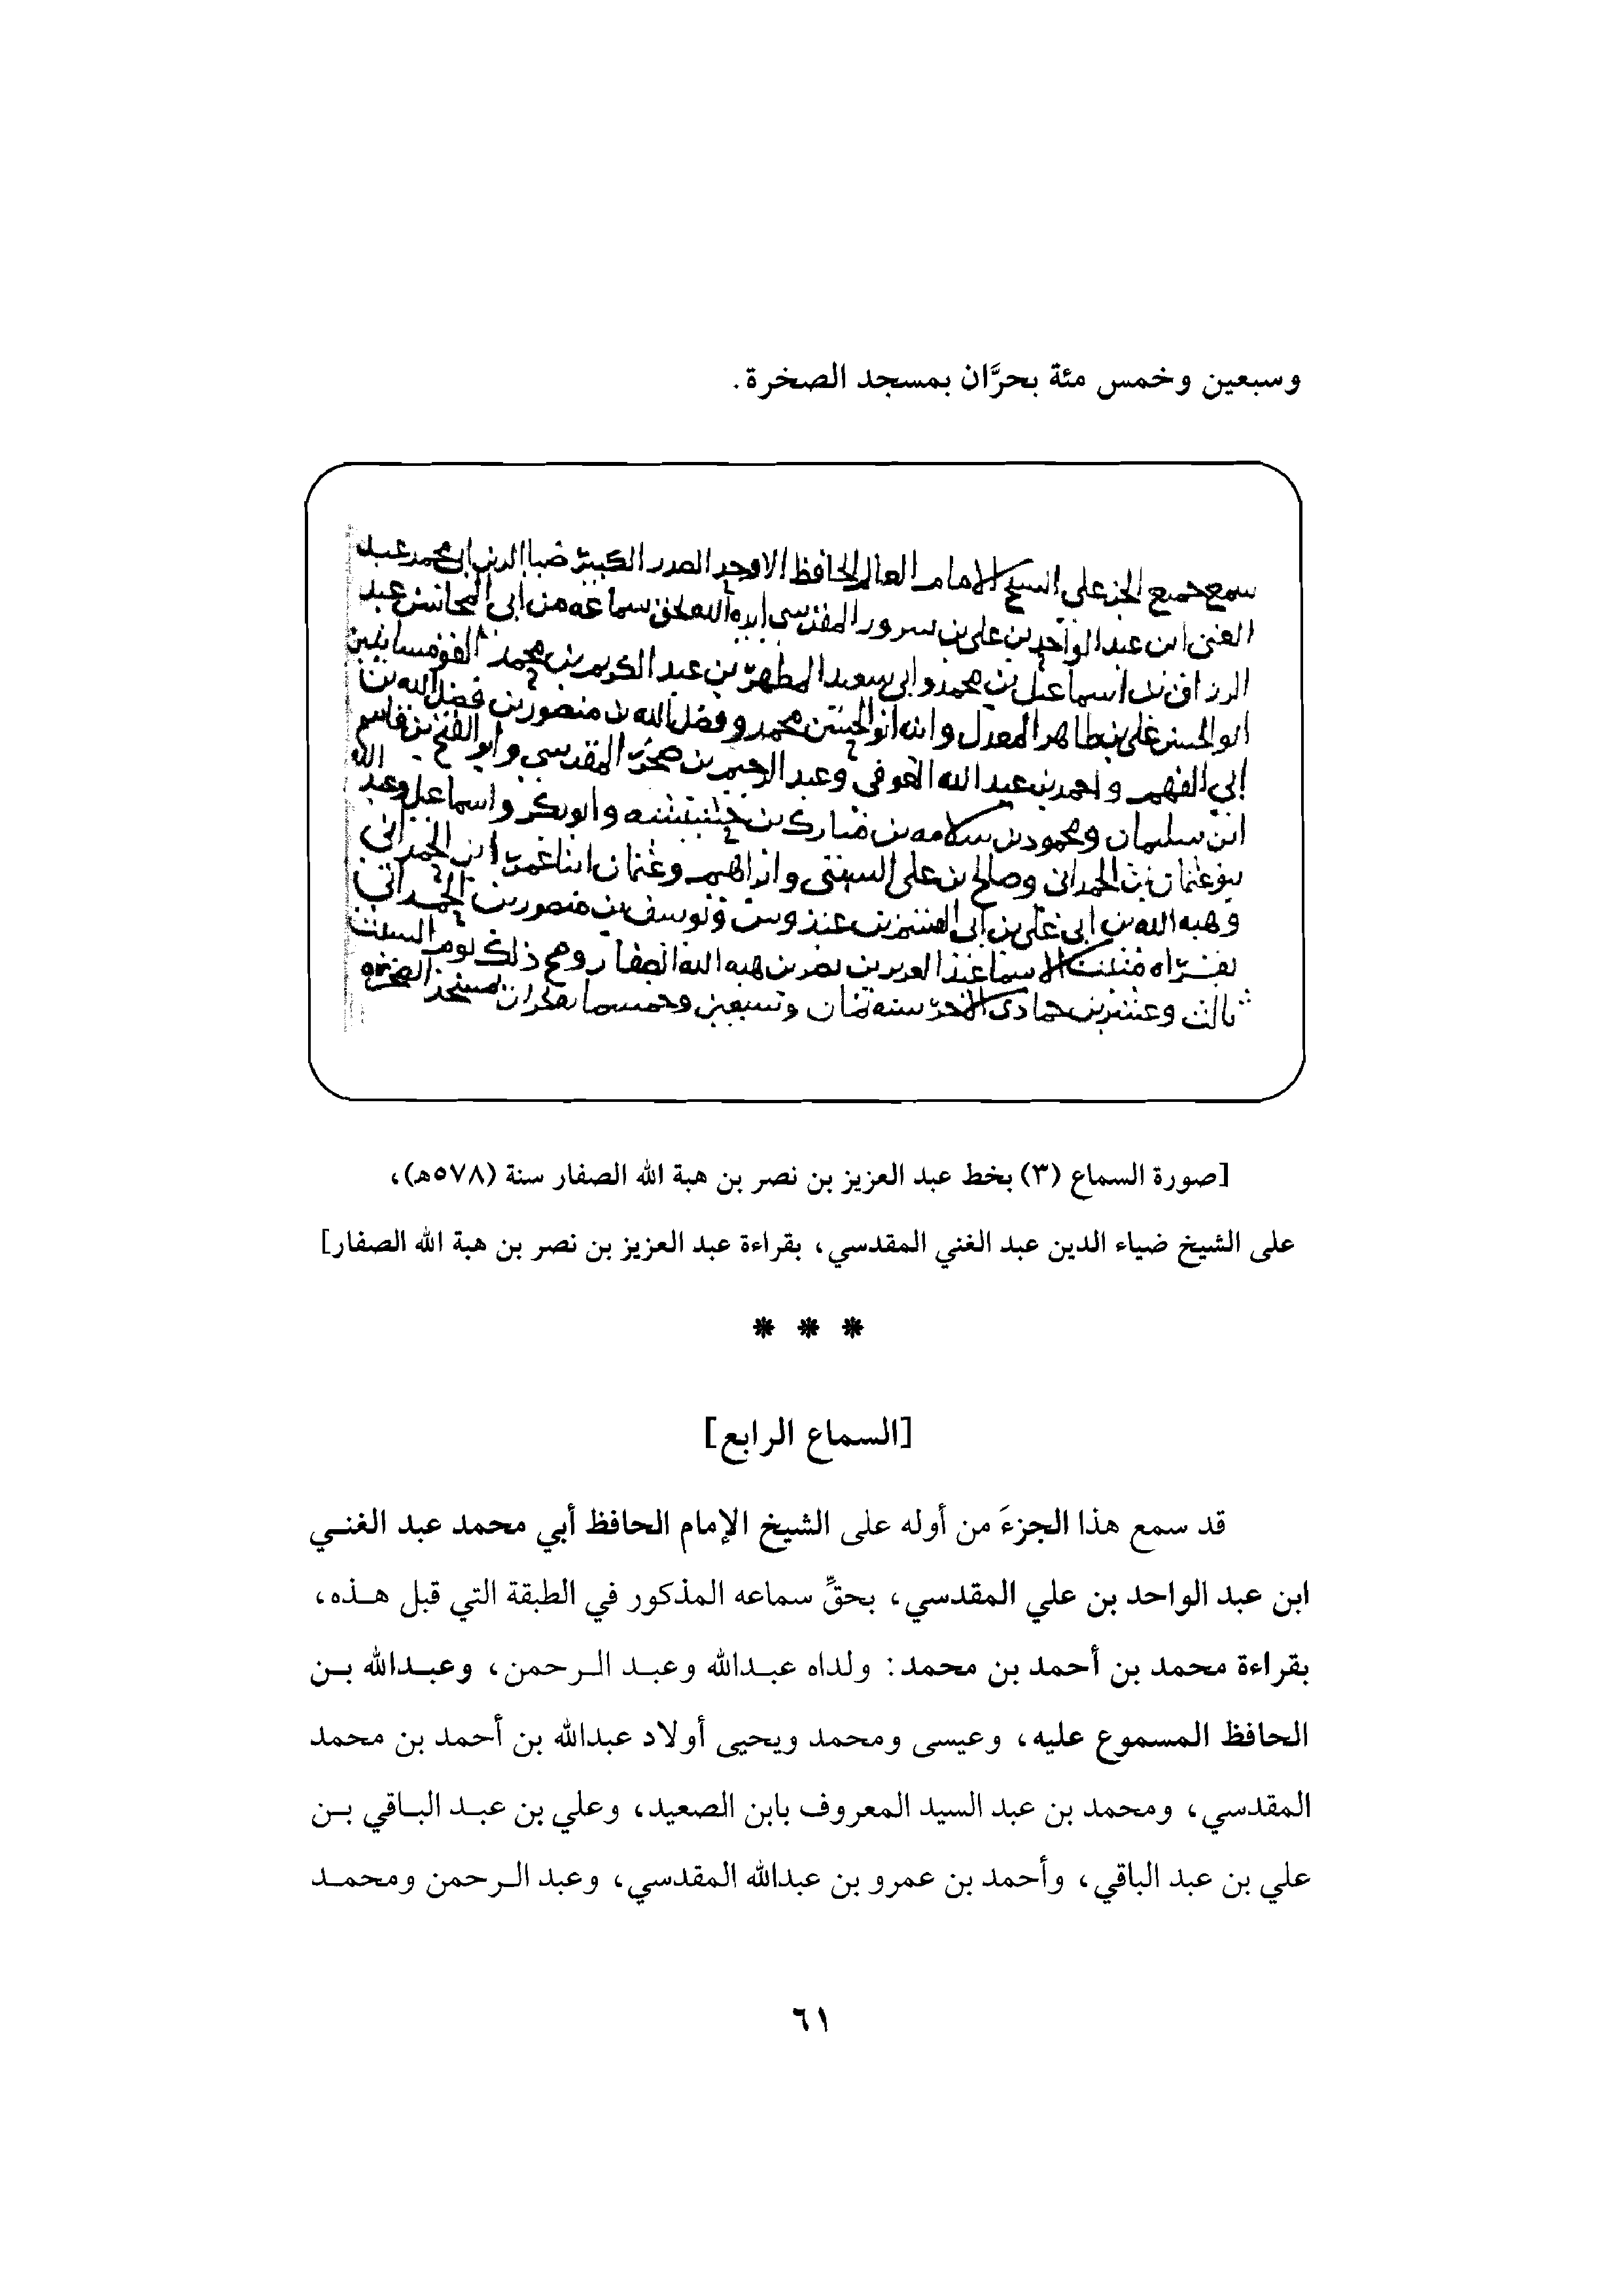 وسبعين وخمس مئة بحرَّان بمسجد الصخرة.
سمع جميع الجز على الشيخ الامام العالم الحافظ الاوحد الصدر الكبير ضيا الدين ابي محمد عبد
الغني ابن عبد الواحد بن علي بن سرور المقدسي ايده الله بحق سماعه من ابي المحاسن عبد
الرزاق بن اسماعيل بن محمد وابي سعيد المطهر بن عبد الكريم بن محمد القومسانيين
ابو الحسن علي بن طاهر المعدل وابنه ابو الحسين محمد وفضل الله بن منصور بن فضل الله بن
ابي الفهم واحمد بن عبد الله العوفي وعبد الرحيم بن المقدسي وابو الفتح بن
ابن سليمان ومحمود بن سلامه بن مبارك بن وابو بكر واسماعيل وعبد الله
بنو عثمان بن وصالح بن علي وابراهيم وعثمان ابنا عمر ابن
وهبه الله بن ابي علي بن ابي ويوسف بن منصور بن
بقراه عبد العزيز بن نصر بن هبه الله الصفار وصح ذلك يوم السبت
ثالث وعشرين جمادى الاخر سنه ثمان وسبعين وخمسما بحران بمسجد الصخره
[صورة السماع (٣) بخط عبد العزيز بن نصر بن هبة الله الصفار سنة (٥٧٨هـ)،
على الشيخ ضياء الدين عبد الغني المقدسي، بقراءة عبد العزيز بن نصر بن هبة الله الصفار]
* * *
[السماع الرابع]
قد سمع هذا الجزءَ من أوله على الشيخ الإمام الحافظ أبي محمد عبد الغني
ابن عبد الواحد بن علي المقدسي، بحقِّ سماعه المذكور في الطبقة التي قبل هذه،
بقراءة محمد بن أحمد بن محمد: ولداه عبدالله وعبد الرحمن، وعبدالله بن
الحافظ المسموع عليه، وعيسى ومحمد ويحيى أولاد عبدالله بن أحمد بن محمد
المقدسي، ومحمد بن عبد السيد المعروف بابن الصعيد، وعلي بن عبد الباقي بن
علي بن عبد الباقي، وأحمد بن عمرو بن عبدالله المقدسي، وعبد الرحمن ومحمد
٦١